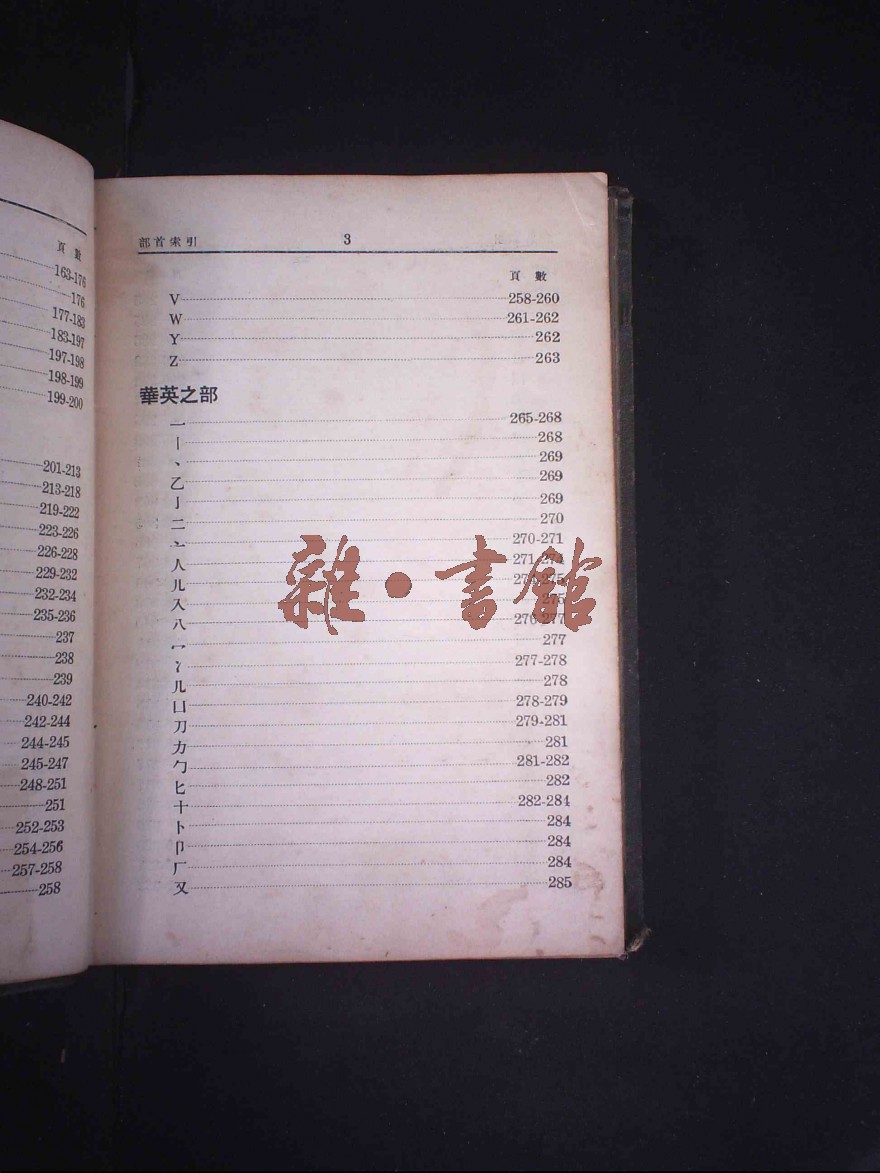 頁 數
163-176
176
177-183
183-197
197-198
198-199
199-200
201-213
213-218
219-222
223-226
226-228
229-232
232-234
235-236
237
238
239
240-242
242-244
244-245
245-247
248-251
251
252-253
254-256
257-258
258
部首索引 3
頁 數
V 258-260
W 261-262
Y 262
Z 263
華英之部
一 265-268
丨 268
丶 269
乙 269
亅 269
二 270
亠 270-271
人 271-274
儿 274-275
入 275
八 276-277
冖 277
冫 277-278
几 278
凵 278-279
刀 279-281
力 281
勹 281-282
匕 282
十 282-284
卜 284
卩 284
厂 284
又 285
雜·書館